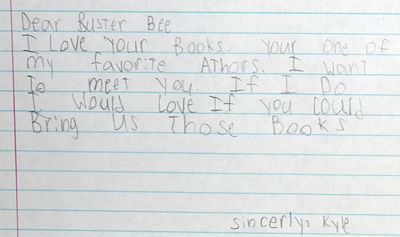 Dear Buster Bee
I Love Your Books. Your one of
my favorite Athors. I want
To meet You. If I Do
I would Love If you could
Bring us Those Books
sincerly, Kyle